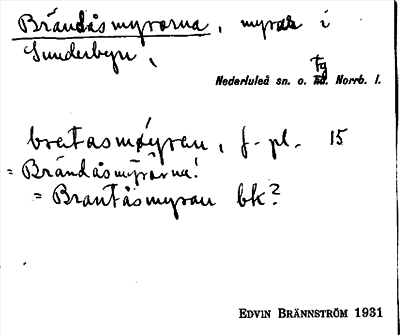 Brändåsmyrorna, myrar i
Sunderbyn,
Nederluleå sn. o. tg Norrb. l.
bratasmøyran, f. pl. 15
= Brändåsmyrarna!
= Brantåsmyran bk?
EDVIN BRÄNNSTRÖM 1931